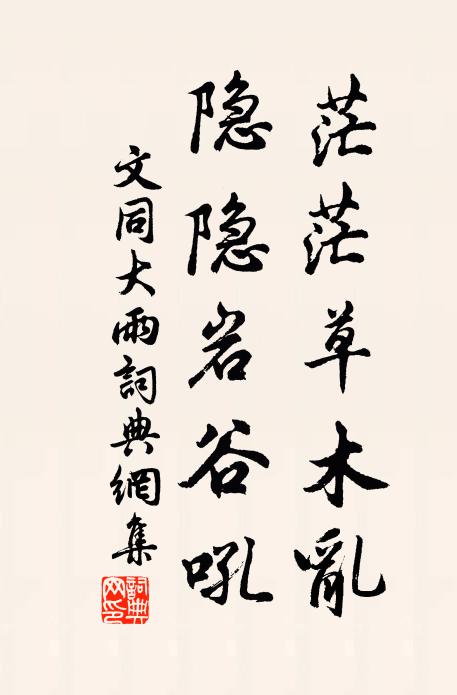 茫茫草木亂
隐隐岩谷吼
文同大雨詞典網集
詞典網印